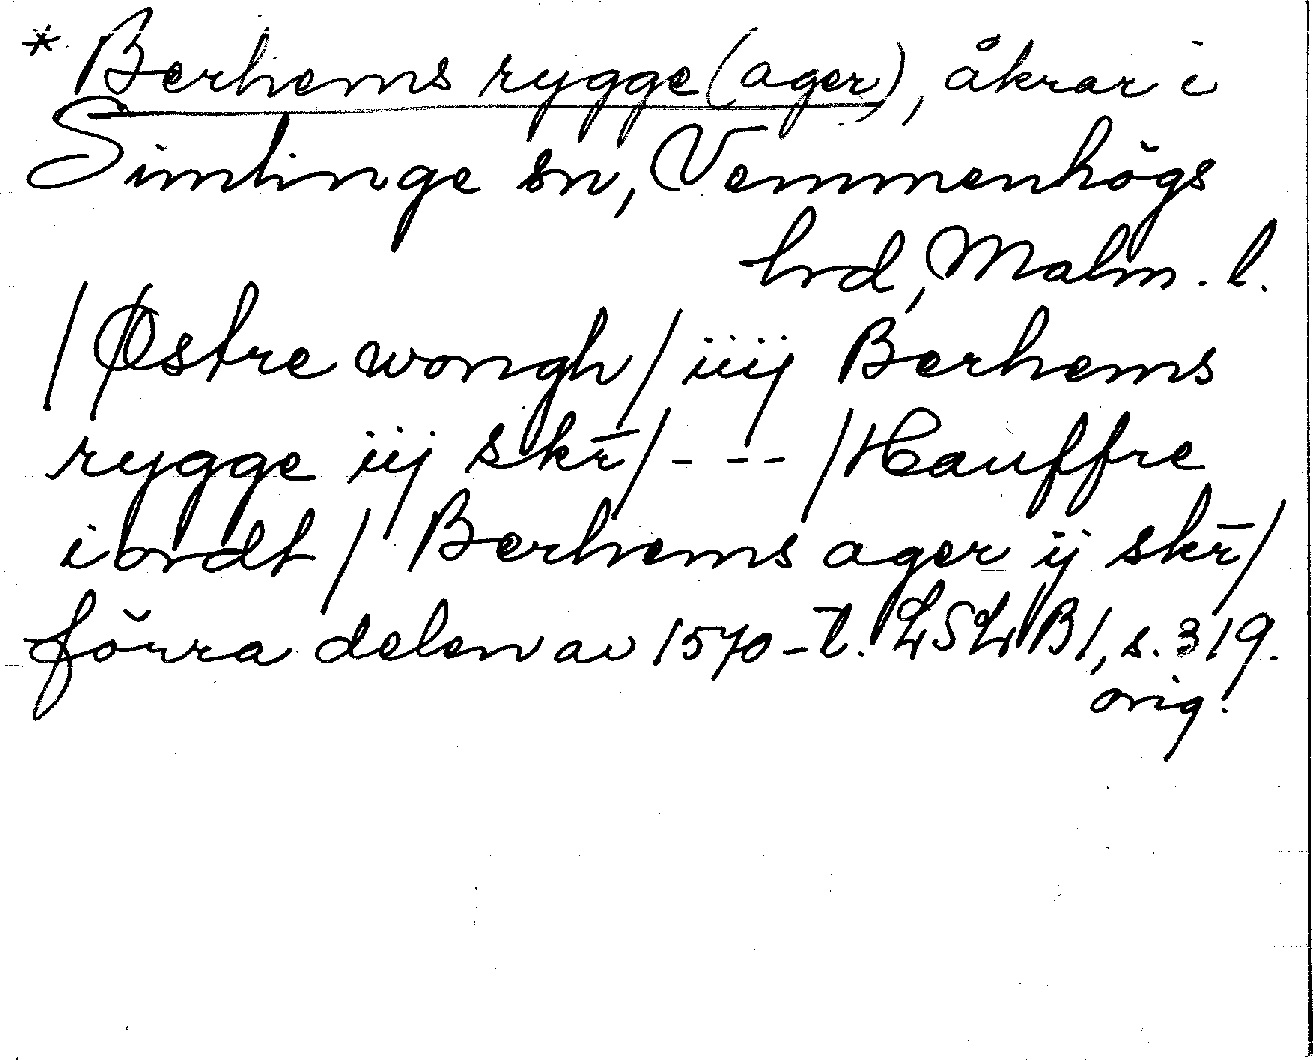 * Berhems rygge (ager), åkrar i
Simlinge sn, Vemmenhögs
hrd, Malm. l.
/Østre wongh/ iiij Berhems
rygge iij skr̄/ - - - /Hauffre
iordt/ Berhems ager ij skr̄/
förra delen av 1570-t. LSLB1, s. 319.
orig.